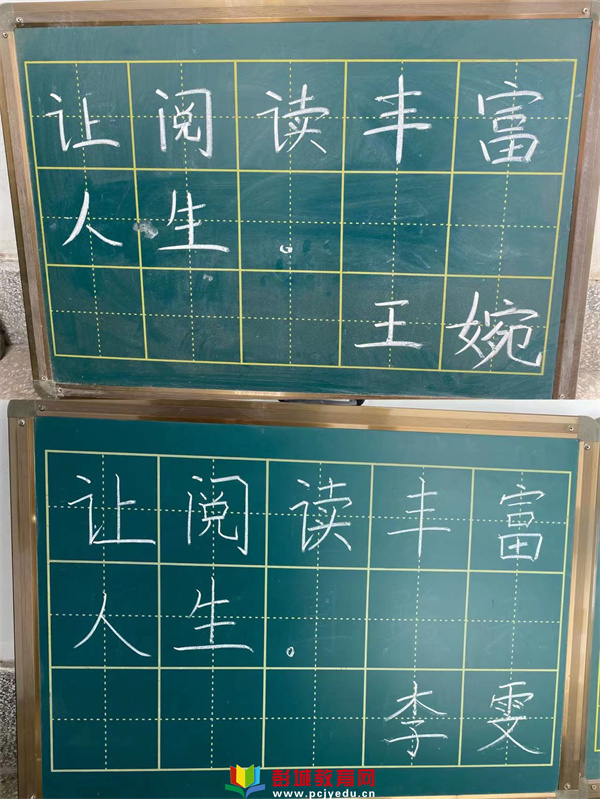 让阅读丰富
人生。
王婉
让阅读丰富
人生。
李雯
彭城教育网
www.pcjyedu.cn